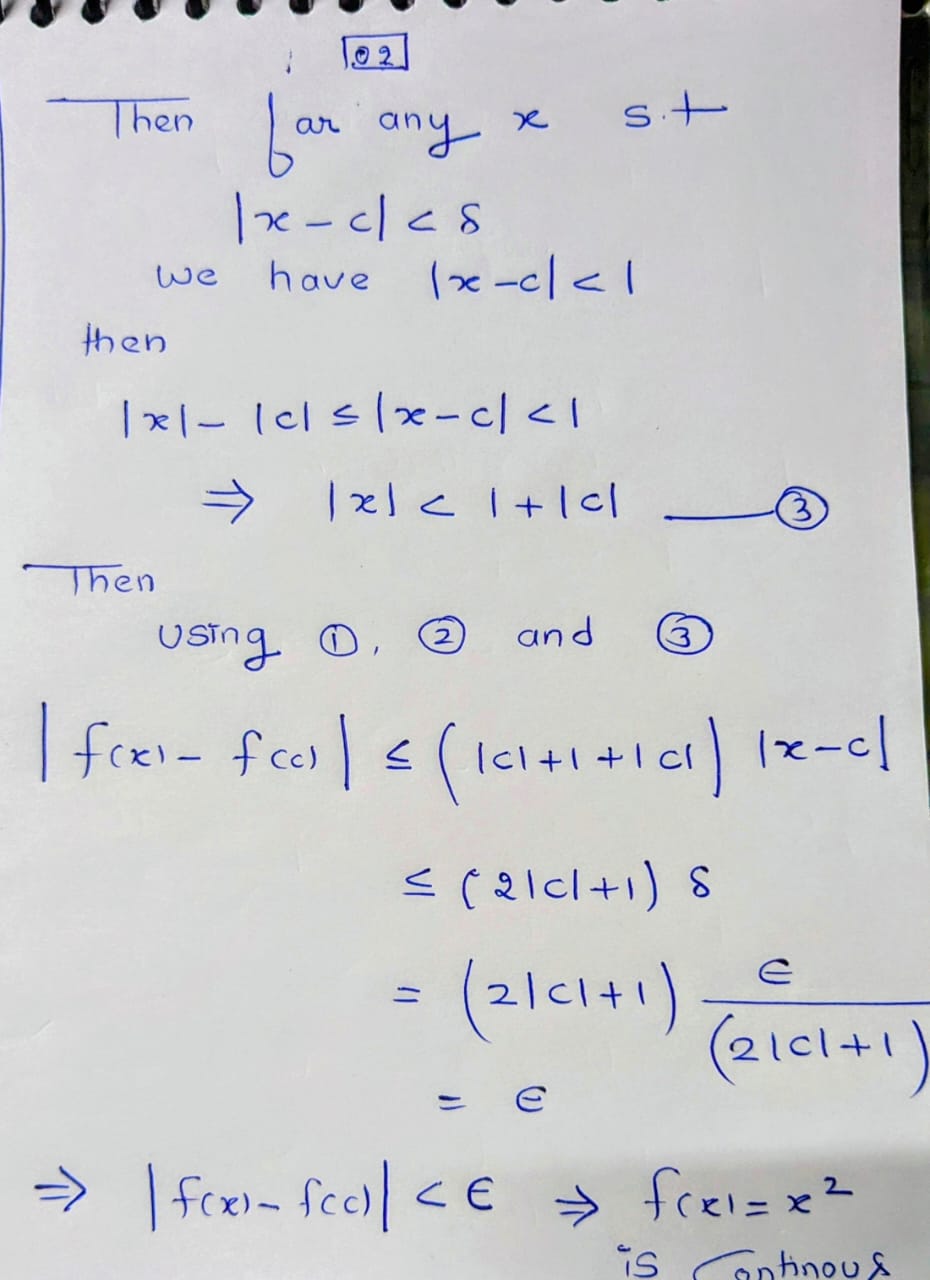 02
Then for any x s.t
|x-c| < δ
we have |x-c| < 1
then
|x| - |c| ≤ |x-c| < 1
⇒ |x| < 1+|c| —— ③
Then
using ①, ② and ③
|f(x) - f(c)| ≤ (|c|+1+|c|) |x-c|
≤ (2|c|+1) δ
= (2|c|+1) ∈/(2|c|+1)
= ∈
⇒ |f(x) - f(c)| < ∈ ⇒ f(x) = x²
is Continous